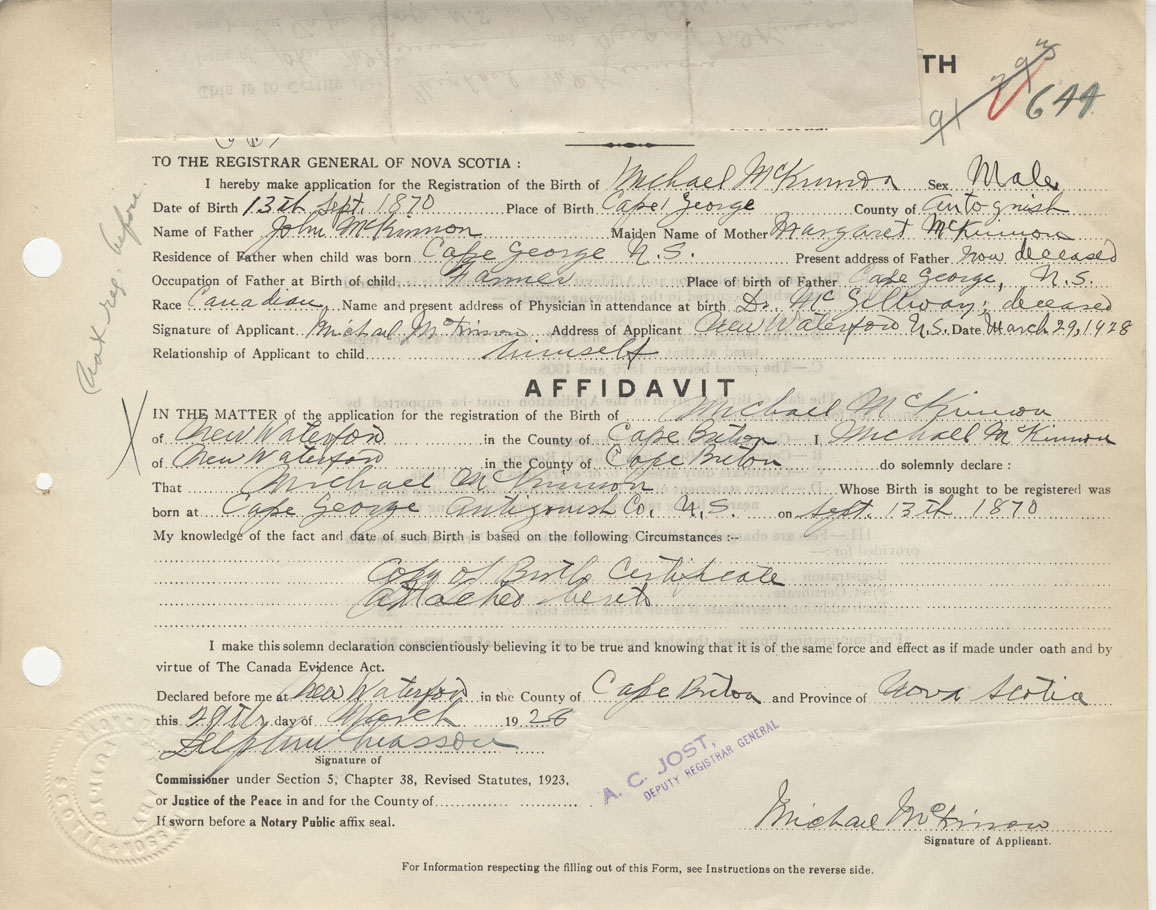 TH
644
TO THE REGISTRAR GENERAL OF NOVA SCOTIA :
I hereby make application for the Registration of the Birth of Michael McKinnon Sex Male
Date of Birth 13th Sept. 1870 Place of Birth Cape George County of Antognish
Name of Father John McKinnon Maiden Name of Mother Margaret McKinnon
Residence of Father when child was born Cape George N.S. Present address of Father Now deceased
Occupation of Father at Birth of child Farmer Place of Birth of Father Cape George, N.S.
Race Canadian Name and present address of Physician in attendance at birth Dr. McGillivray; deceased
Signature of Applicant Michael McKinnon Address of Applicant New Waterford N.S. Date March 29, 1928
Relationship of Applicant to child himself
Not reg. before
AFFIDAVIT
IN THE MATTER of the application for the registration of the Birth of Michael McKinnon
of New Waterford in the County of Cape Breton I Michael McKinnon
of New Waterford in the County of Cape Breton do solemnly declare :
That Michael McKinnon Whose Birth is sought to be registered was
born at Cape George Antigonish Co. N.S. on Sept. 13th 1870
My knowledge of the fact and date of such Birth is based on the following Circumstances :--
Copy of Birth Certificate
attached hereto
I make this solemn declaration conscientiously believing it to be true and knowing that it is of the same force and effect as if made under oath and by
virtue of The Canada Evidence Act.
Declared before me at New Waterford in the County of Cape Breton and Province of Nova Scotia
this 29th day of March 1928
Signature of
Commissioner under Section 5, Chapter 38, Revised Statutes, 1923,
or Justice of the Peace in and for the County of
If sworn before a Notary Public affix seal.
A. C. JOST,
DEPUTY REGISTRAR GENERAL
Michael McKinnon
Signature of Applicant.
For Information respecting the filling out of this Form, see Instructions on the reverse side.